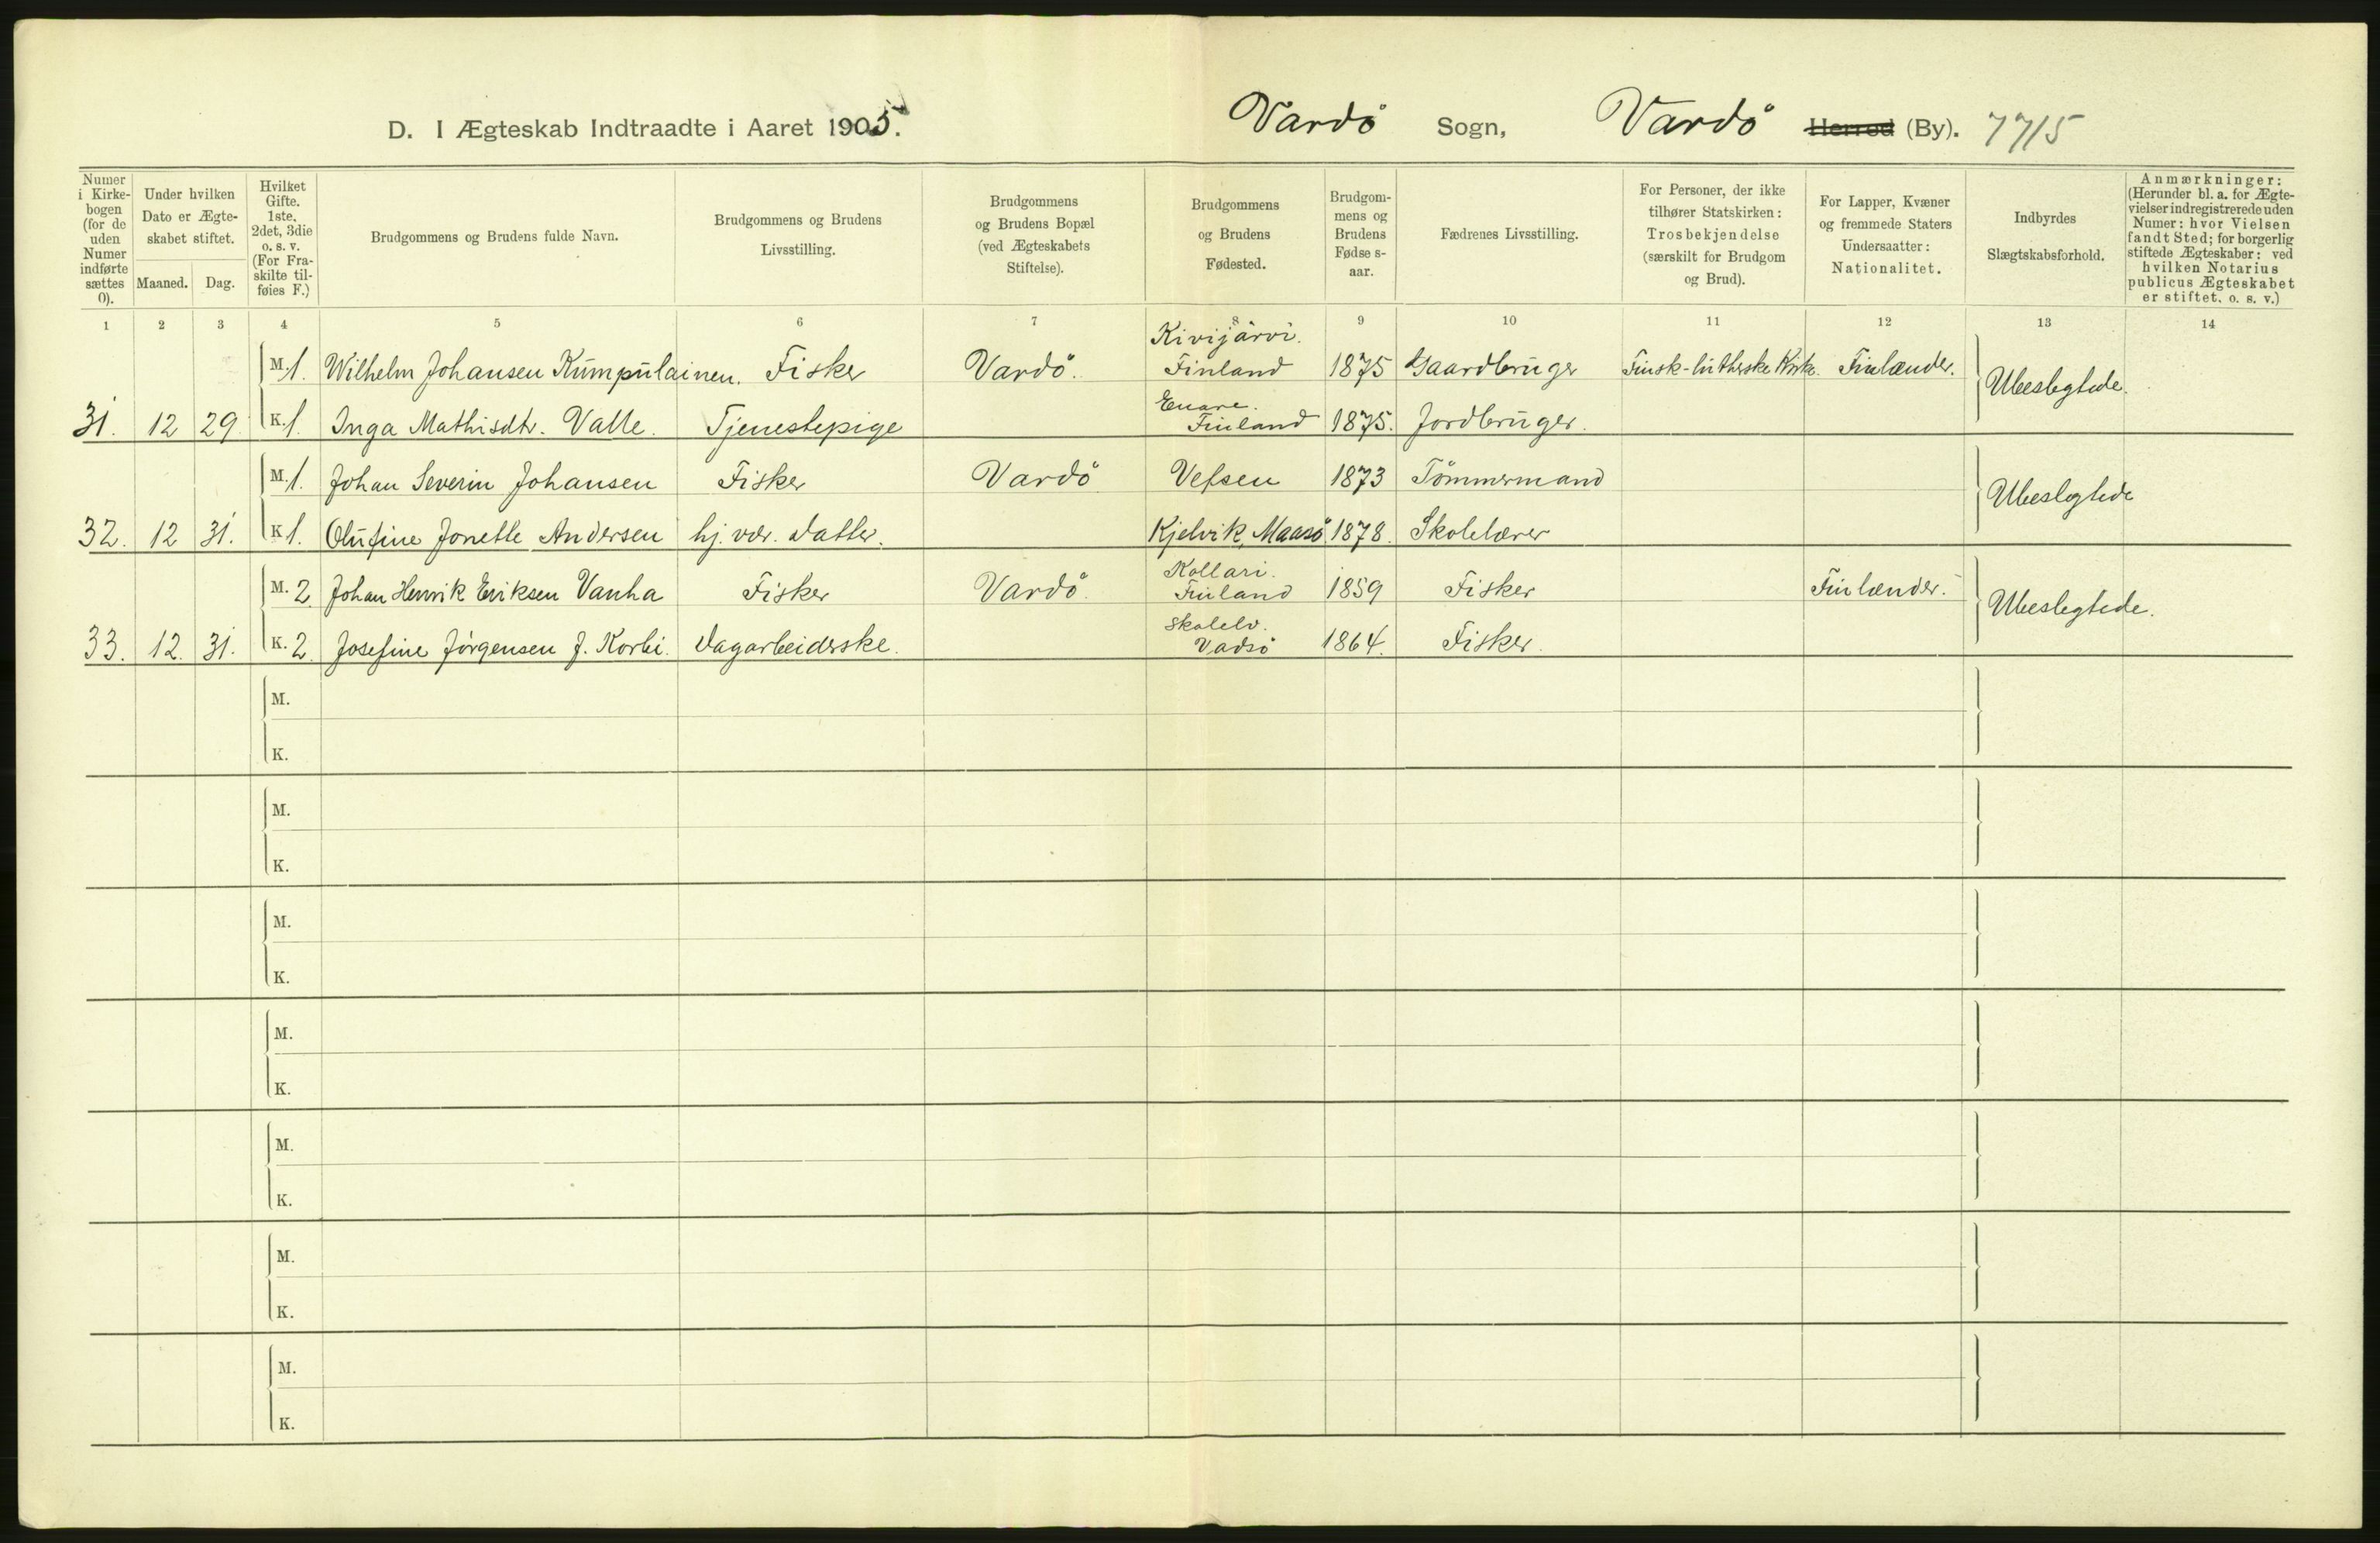 D. I Ægteskab Indtraadte i Aaret 1905. Vardö Sogn, Vardö Herred (By). 7715
Numer i Kirkebogen (for de uden Numer indførte sættes 0).
Under hvilken Dato er Ægteskabet stiftet.
Maaned. Dag.
Hvilket Gifte. 1ste, 2det, 3die o. s. v. (For Fraskilte tilføies F.)
Brudgommens og Brudens fulde Navn.
Brudgommens og Brudens Livsstilling.
Brudgommens og Brudens Bopæl (ved Ægteskabets Stiftelse).
Brudgommens og Brudens Fødested.
Brudgommens og Brudens Fødselsaar.
Fædrenes Livsstilling.
For Personer, der ikke tilhører Statskirken: Trosbekjendelse (særskilt for Brudgom og Brud).
For Lapper, Kvæner og fremmede Staters Undersaatter: Nationalitet.
Indbyrdes Slægtskabsforhold.
Anmærkninger: (Herunder bl. a. for Ægtevielser indregistrerede uden Numer: hvor Vielsen fandt Sted; for borgerlig stiftede Ægteskaber: ved hvilken Notarius publicus Ægteskabet er stiftet. o. s. v.)
1 2 3 4 5 6 7 8 9 10 11 12 13 14
M. 1. Wilhelm Johansen Kumpulainen. Fisker Vardö. Kivijärvi. Finland 1875 Gaardbruger Finsk-lutherske Kirke. Finlænder. Ubeslegtede.
31. 12 29. K. 1. Inga Mathisdtr. Valle. Tjenestepige Enare. Finland 1875. Jordbruger.
M. 1. Johan Severin Johansen Fisker Vardö Vefsen 1873 Tömmermand Ubeslegtede
32. 12 31. K. 1. Olufine Jonette Andersen hj. vær. Datter. Kjelvik, Maasö 1878. Skolelærer
M. 2. Johan Henrik Eriksen Vanha Fisker Vardö. Kollari. Finland 1859 Fisker Finlænder. Ubeslegtede.
33. 12. 31. K. 2. Josefine Jörgensen f. Korbi. Dagarbeiderske. Skalelv. Vadsö 1864. Fisker.
M.
K.
M.
K.
M.
K.
M.
K.
M.
K.
M.
K.
M.
K.